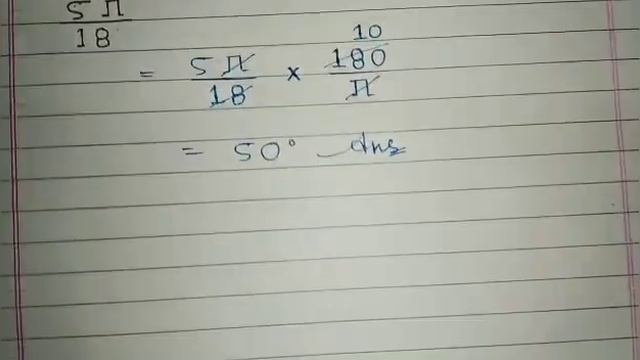 5π/18
= 5π/18 × 180/π 10
= 50° Ans